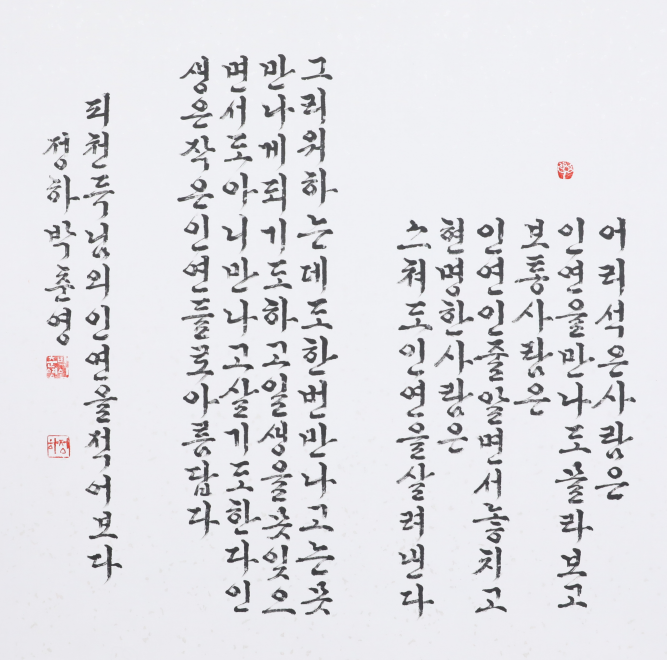 어리석은사람은
인연을만나도몰라보고
보통사람은
인연인줄알면서놓치고
현명한사람은
스쳐도인연을살려낸다
그리워하는데도한번만나고는못
만나게되기도하고일생을못잊으
면서도아니만나고살기도한다인
생은작은인연들로아름답다
피천득님의인연을적어보다
정하박춘영
정하